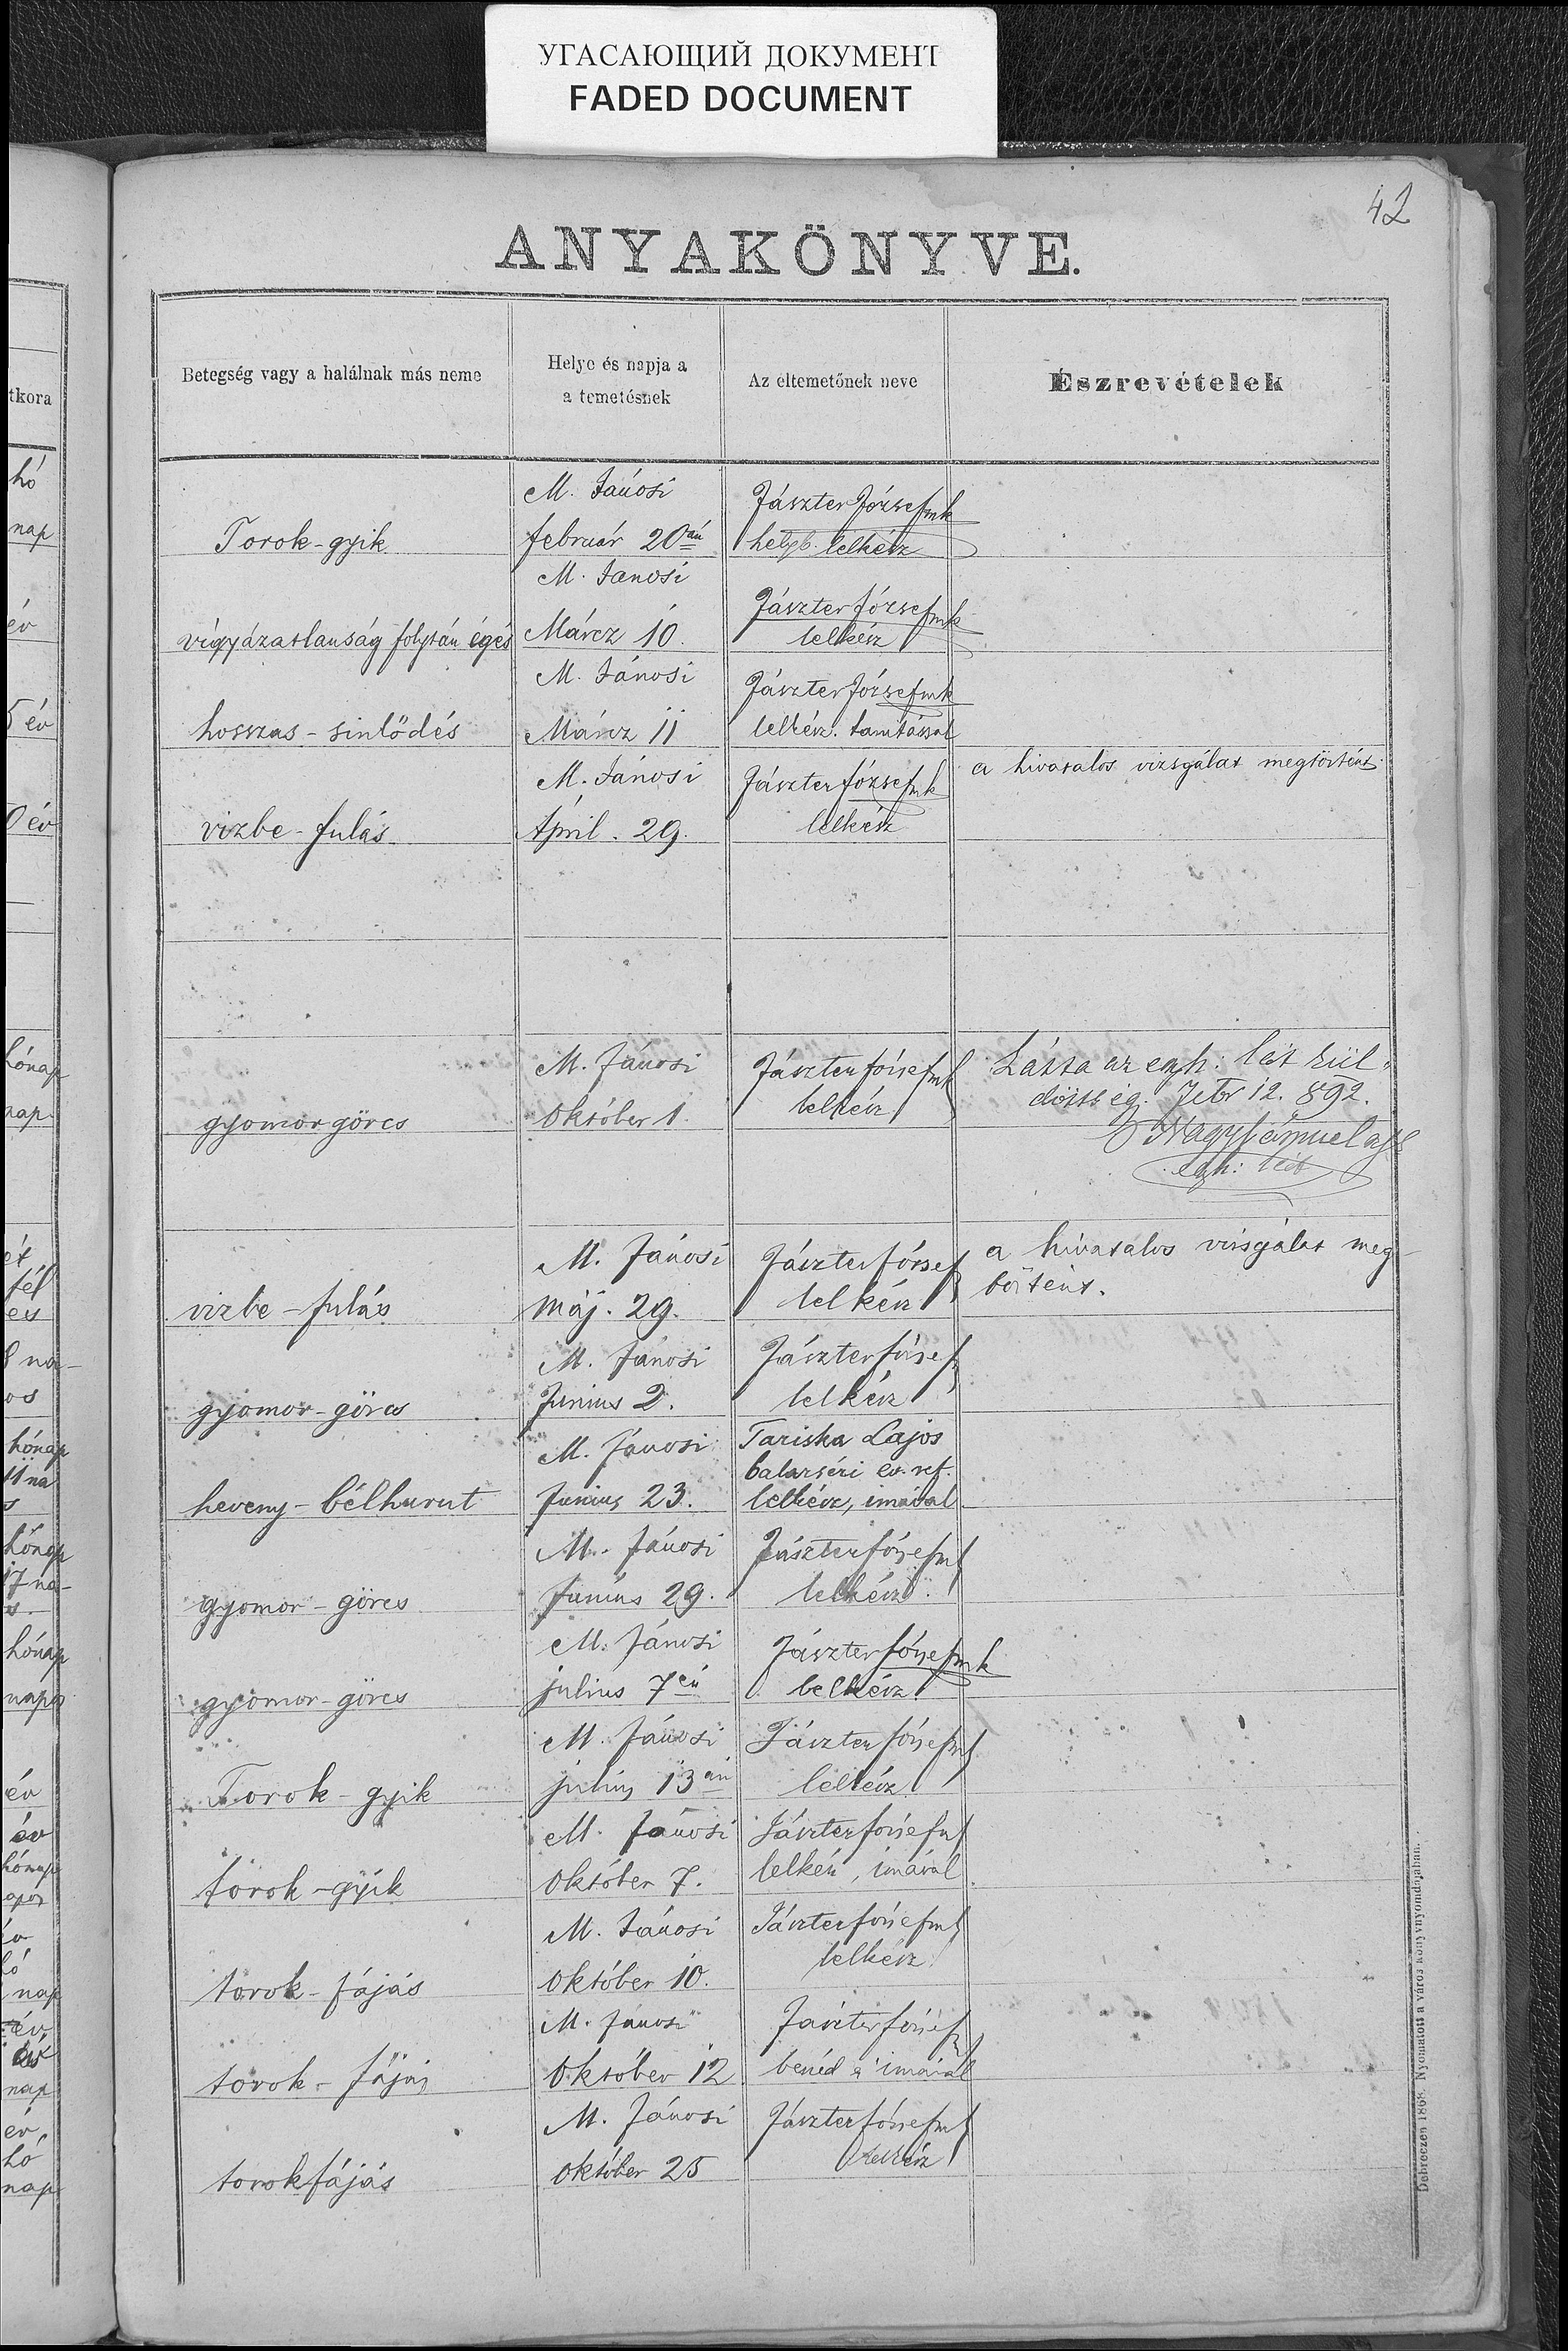 УГАСАЮЩИЙ ДОКУМЕНТ
FADED DOCUMENT
42
ANYAKÖNYVE.
tkora
Betegség vagy a halálnak más neme
Helye és napja a
a temetésnek
Az eltemetőnek neve
Észrevételek
hó
nap
M. Jánosi
Jászter József mk
Torok-gyik
február 20án
helyb. lelkész
év
M. Janosi
Jászter József mk
vigyázatlanság folytán égés
Márcz 10.
lelkész
5 év
M. Jánosi
Jászter József mk
hosszas-sinlődés
Márcz 11
lelkész. tanitással
0 év
M. Jánosi
Jászter József mk
a hivatalos vizsgálat megtörtént.
vizbe-fulás
Ápril. 29.
lelkész
hónap
nap
M. Jánosi
Jászter József mk
Látta az egyh: lát. kül-
döttség. Febr 12. 892.
gyomorgörcs
Október 1.
lelkész
Nagy Sámuel
egyh:
fél
es
M. Jánosi
Jászter József
a hivatalos visgálat meg-
történt.
vizbe-fulás
máj. 29.
lelkész
8 na-
os
M. Jánosi
Jászter József
gyomor-görcs
Junius 2.
lelkész
hónap
11 na
s
M. Jánosi
Tariska Lajos
ev. ref.
heveny-bélhurut
Junius 23.
lelkész, imával
hónap
17 na-
s.
M. Jánosi
Jászter József mk
gyomor-görcs
Junius 29.
lelkész.
hónap
napos
M. Jánosi
Jászter József mk
gyomor-görcs
julius 7én
lelkész
év
M. Jánosi
Jászter József mk
Torok-gyik
julius 13án
lelkész
év
hónap
M. Jánosi
Jászter József mk
torok-gyik
Október 7.
lelkész, imával
hó
nap
M. Jánosi
Jászter József mk
torok-fájás
Október 10.
lelkész
év,
nap
M. Jánosi
Jászter József
torok-fájás
Október 12
imával
év,
hó
nap
M. Jánosi
Jászter József mk
torokfájás
október 25
lelkész
Debreczen 1868. Nyomatott a város könyvnyomdájában.